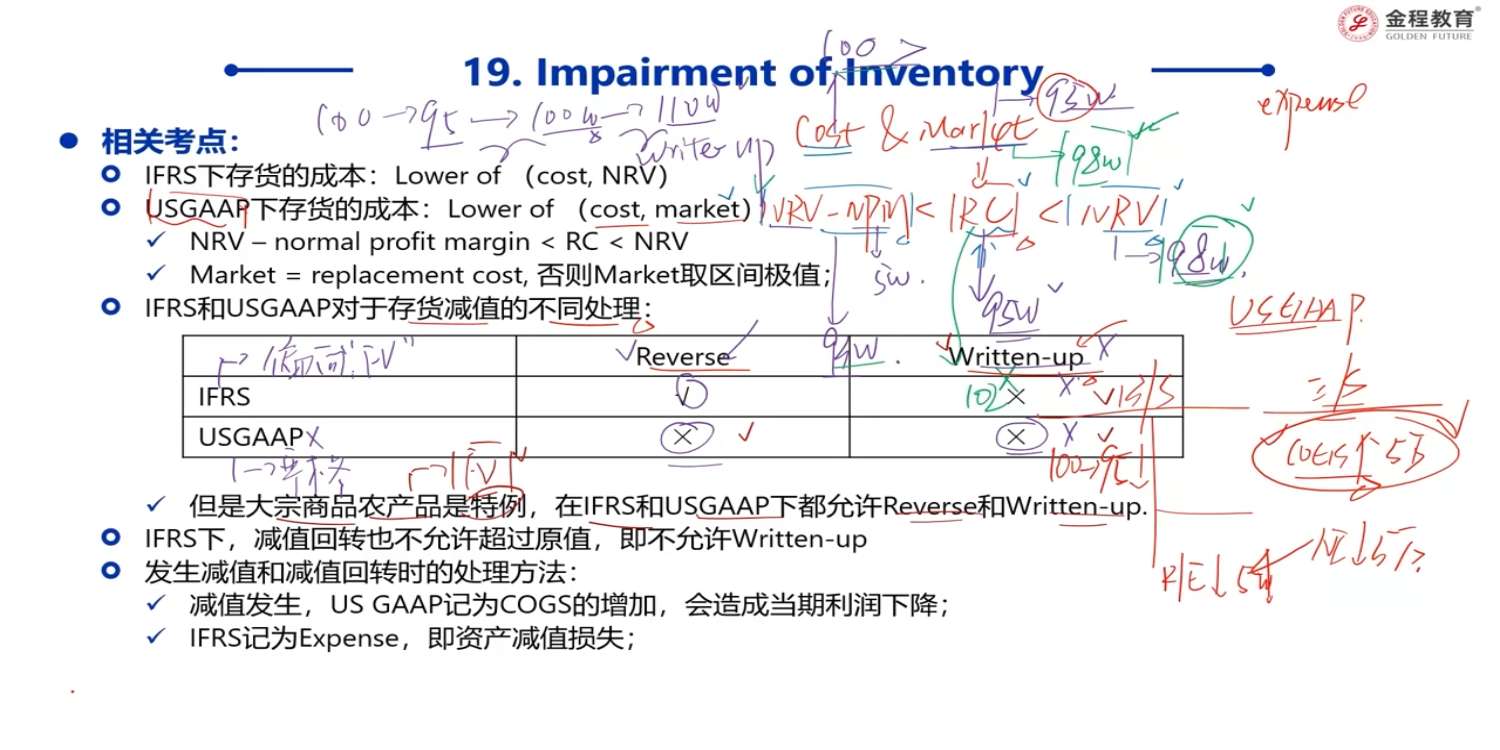 金程教育
GOLDEN FUTURE
19. Impairment of Inventory
100 >
100→95→100w→110w
writer up
cost & Market
93w
98w
expense
相关考点：
IFRS下存货的成本：Lower of （cost, NRV）
USGAAP下存货的成本：Lower of （cost, market）
NRV-NPM < RC < NRV
NRV – normal profit margin < RC < NRV
5w.
98w.
Market = replacement cost, 否则Market取区间极值；
95w
IFRS和USGAAP对于存货减值的不同处理：
USGAAP
Reverse
93w.
Written-up ×
IFRS
√
102
×
× √ B/S
I/S
USGAAP ×
× √
× × √
COGS↑ 5万
100→95↓
FV √
但是大宗商品农产品是特例，在IFRS和USGAAP下都允许Reverse和Written-up.
IFRS下，减值回转也不允许超过原值，即不允许Written-up
NI↓5万
发生减值和减值回转时的处理方法：
R/E↓5w
减值发生，US GAAP记为COGS的增加，会造成当期利润下降；
IFRS记为Expense，即资产减值损失；